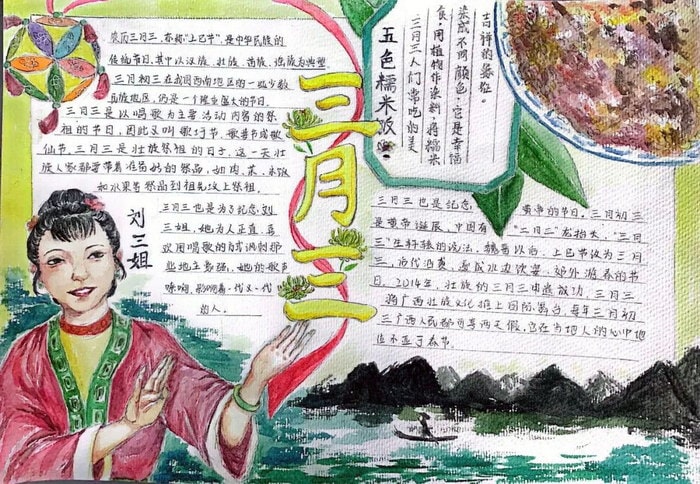 农历三月三，亦称"上巳节"，是中华民族的
传统节日，其中以汉族、壮族、苗族、瑶族为典型
三月初三在我国西南地区的一些少数
民族地区，仍是一个隆重盛大的节日。
三月三是以唱歌为主要活动内容的祭
祖的节日，因此又叫歌圩节、歌婆节或歌
仙节。三月三是壮族祭祖的日子，这一天壮
族人家都要带着准备好的祭品，如肉、菜、米饭
和水果等祭品到祖先坟上祭祖。
刘三姐
三月三也是为了纪念刘
三姐，她为人正直，喜
欢用唱歌的方式讽刺那
些地主恶霸，她的歌声
嘹响，影响着一代又一代
的人。
三月三
五色糯米饭
三月三人们常吃的美
食，用植物作染料，将糯米
染成不同颜色，它是幸福
吉祥的象征。
三月三也是纪念黄帝的节日，三月初三
是黄帝诞辰，中国有"二月二，龙抬头，三月
三"生轩辕的说法。魏晋以后，上巳节改为三月
三，历代沿袭，变成水边饮宴、郊外游春的节
日。2014年，壮族的三月三申遗成功，三月三
将广西壮族文化推上国际舞台，每年三月初
三广西人民都可享两天假，它在当地人的心中地
位不亚于春节。